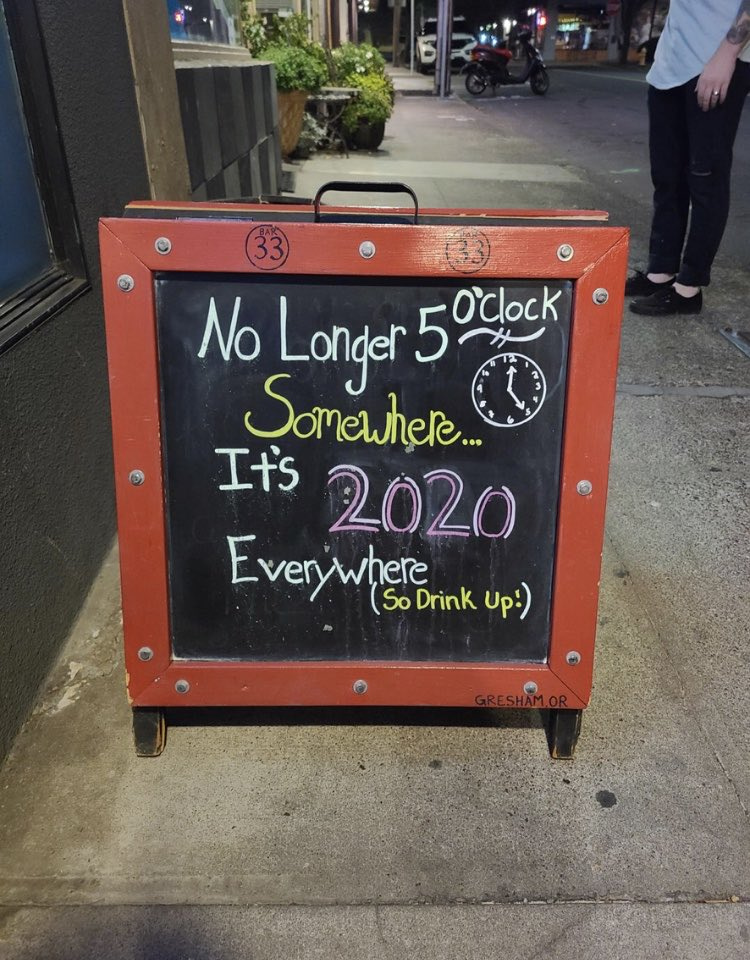 BAR
33
BAR
33
No Longer 5 O'Clock
12 1 2 3 4 5 6 7 8 9 10 11
Somewhere...
It's 2020
Everywhere
(So Drink Up!)
GRESHAM, OR